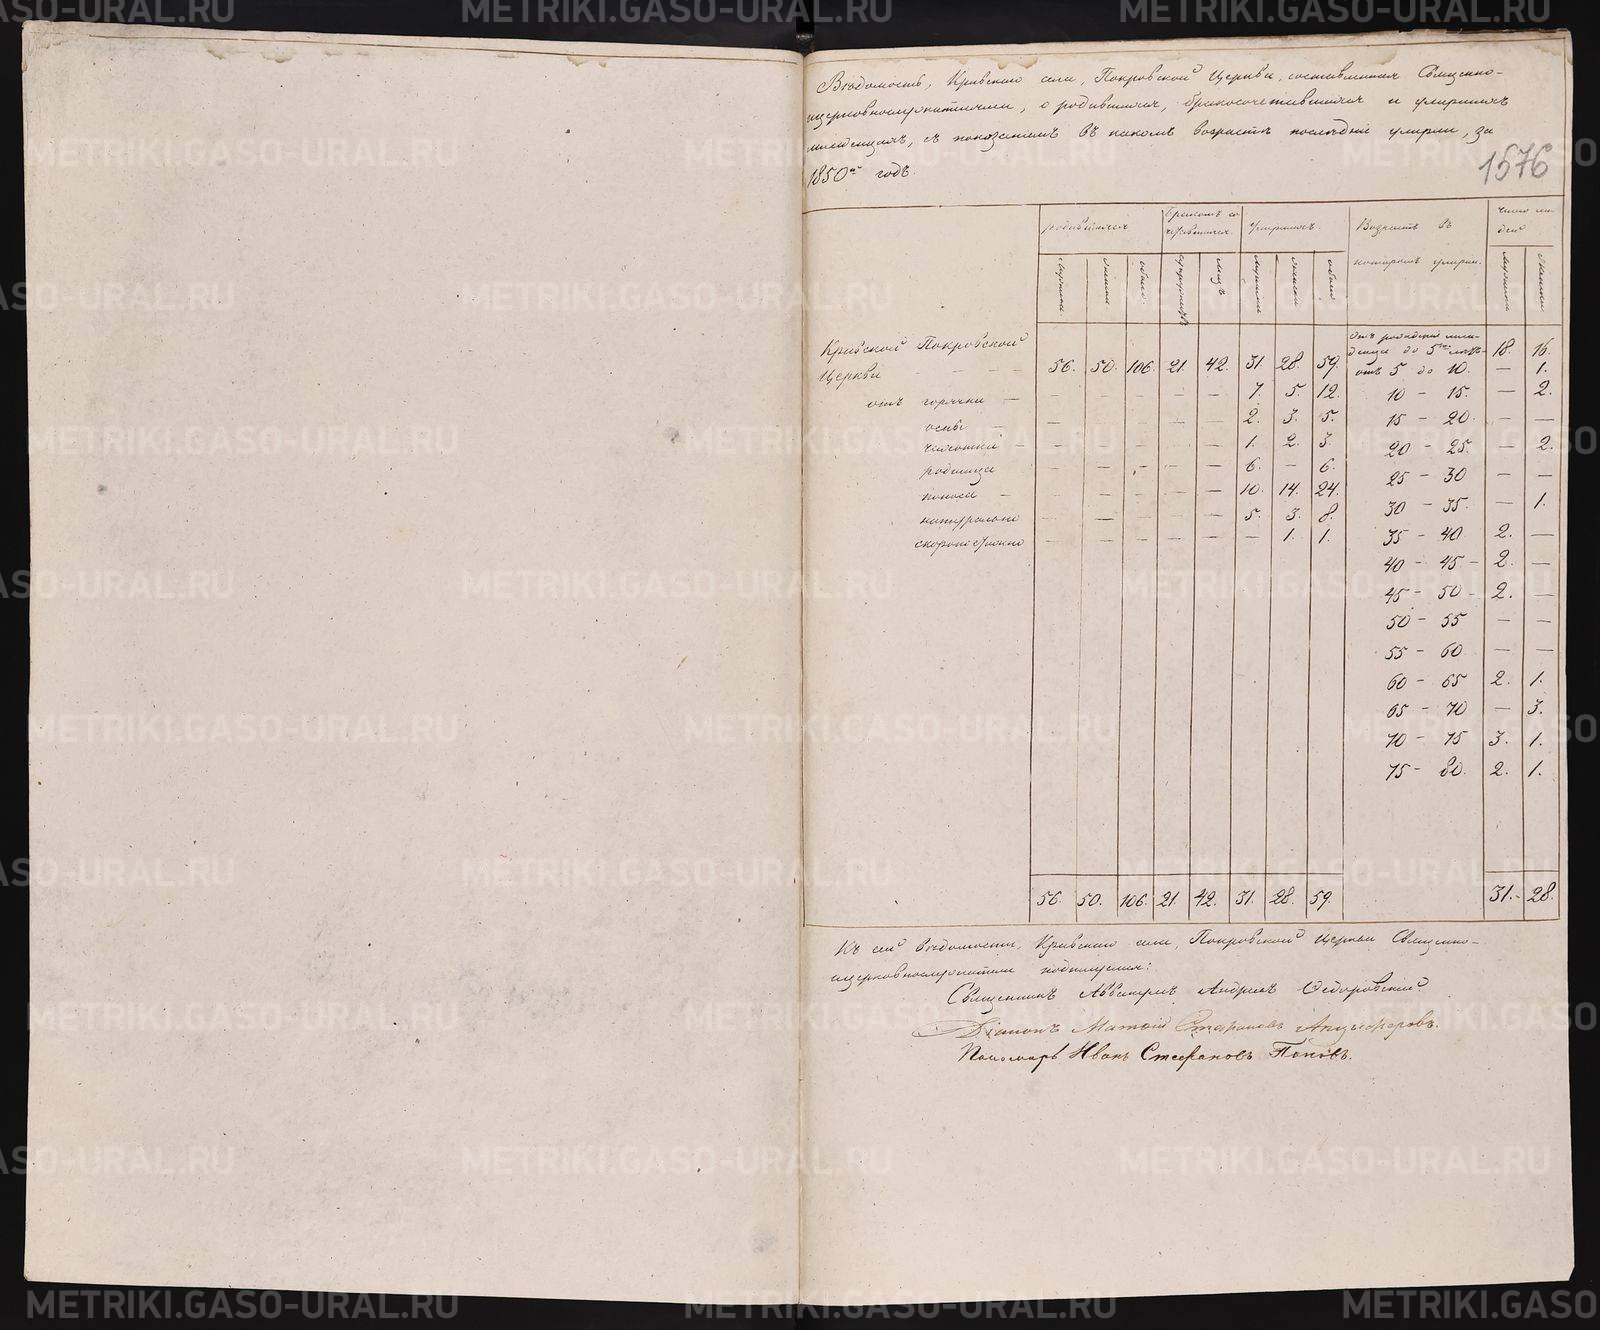 Вѣдомость, Кривскаго села, Покровской Церкви, составленная Священно-
церковнослужителями, о родившихся, бракосочетавшихся и умершихъ
съ показаніемъ въ какомъ возрастѣ послѣдніе умерли, за
1850й годъ.
1576
родившихся Бракомъ сочетавшихся. умершихъ. Возрастъ въ которомъ умерли. Число людей
мужска женска обоего. супружествъ лицъ мужска женска обоего мужска женска
Кривской Покровской
Церкви — — — 56. 50. 106. 21. 42. 31. 28. 59.
отъ горячки — — — — — — 7. 5. 12.
оспы — — — — 2. 3. 5.
чахотки — — — — — — 1. 2. 3.
родимца — — — — — 6. — 6.
поноса — — — — — — 10. 14. 24.
натурально — — — — — 5. 3. 8.
скоропостижно — — — — — — 1. 1.
отъ рожденія младенца до 5ти лѣтъ 18. 16.
отъ 5 до 10. — 1.
10 — 15. — 2.
15 — 20. — —
20 — 25. — 2.
25 — 30 — —
30 — 35. — 1.
35 — 40 2. —
40 — 45 — 2. —
45 — 50 — 2. —
50 — 55 — —
55 — 60 — —
60 — 65 2. 1.
65 — 70 — 3.
70 — 75 3. 1.
75 — 80. 2. 1.
56. 50. 106. 21. 42. 31. 28. 59. 31. 28.
Къ сей вѣдомости, Кривскаго села, Покровской Церкви Священно-
церковнослужители подписуемся:
Священникъ Андрей Ѳедоровскій
Діаконъ Матѳій Стефановъ
Пономарь Иванъ Стефановъ Поповъ.
METRIKI.GASO-URAL.RU